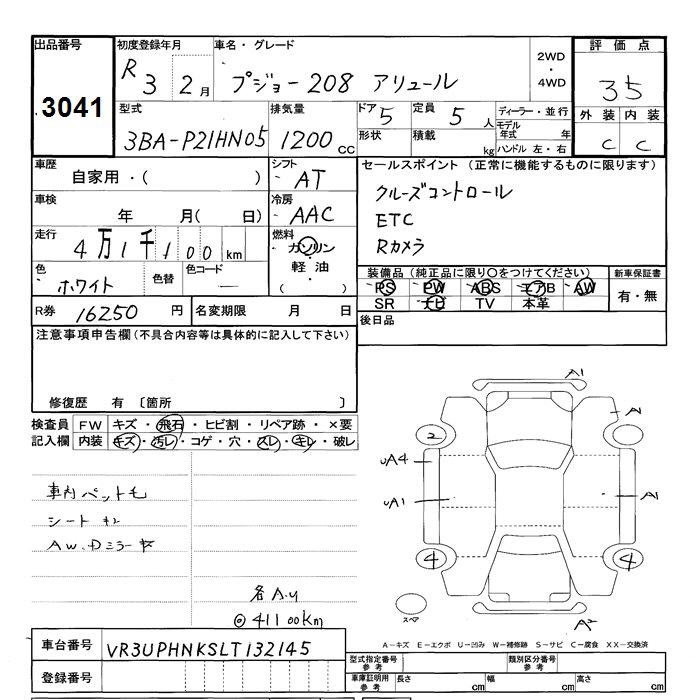 出品番号 初度登録年月 車名・グレード 2WD ・ 4WD 評価点
3041 R 3 2月 プジョー208 アリュール 3.5
型式 排気量 ドア 5 定員 5 人 ディーラー・並行 外装 内装
3BA-P21HN05 1200 CC 形状 積載 kg モデル年式 年 ハンドル 左・右 C C
車歴 シフト セールスポイント (正常に機能するものに限ります)
自家用・( ) AT クルーズコントロール
車検 冷房 ETC
年 月( 日) AAC Rカメラ
走行 燃料
4万1千100 km ガソリン ・ 軽油 ( )
色 ホワイト 色替 色コード 装備品 (純正品に限り○をつけてください) 新車保証書
PS PW ABS エアB AW 有・無
SR ナビ TV 本革
R券 16250 円 名変期限 月 日 後日品
注意事項申告欄(不具合内容等は具体的に記入して下さい)
修復歴 有 〔箇所 〕
検査員 FW キズ・飛石・ヒビ割・リペア跡・×要
記入欄 内装 キズ・汚レ・コゲ・穴・スレ・キレ・破レ
車内ペット毛
シート
AW、Dミラーキズ
各A.U
◎41100km
A1
A1
2
UA4
UA1
A1
4 4
スペア
A2
A-キズ E-エクボ U-凹み W-補修跡 S-サビ C-腐食 XX-交換済
車台番号 VR3UPHNKSLT132145
型式指定番号 参考 類別区分番号 参考
登録番号 車庫証明用 参考 長さ cm 幅 cm 高さ cm